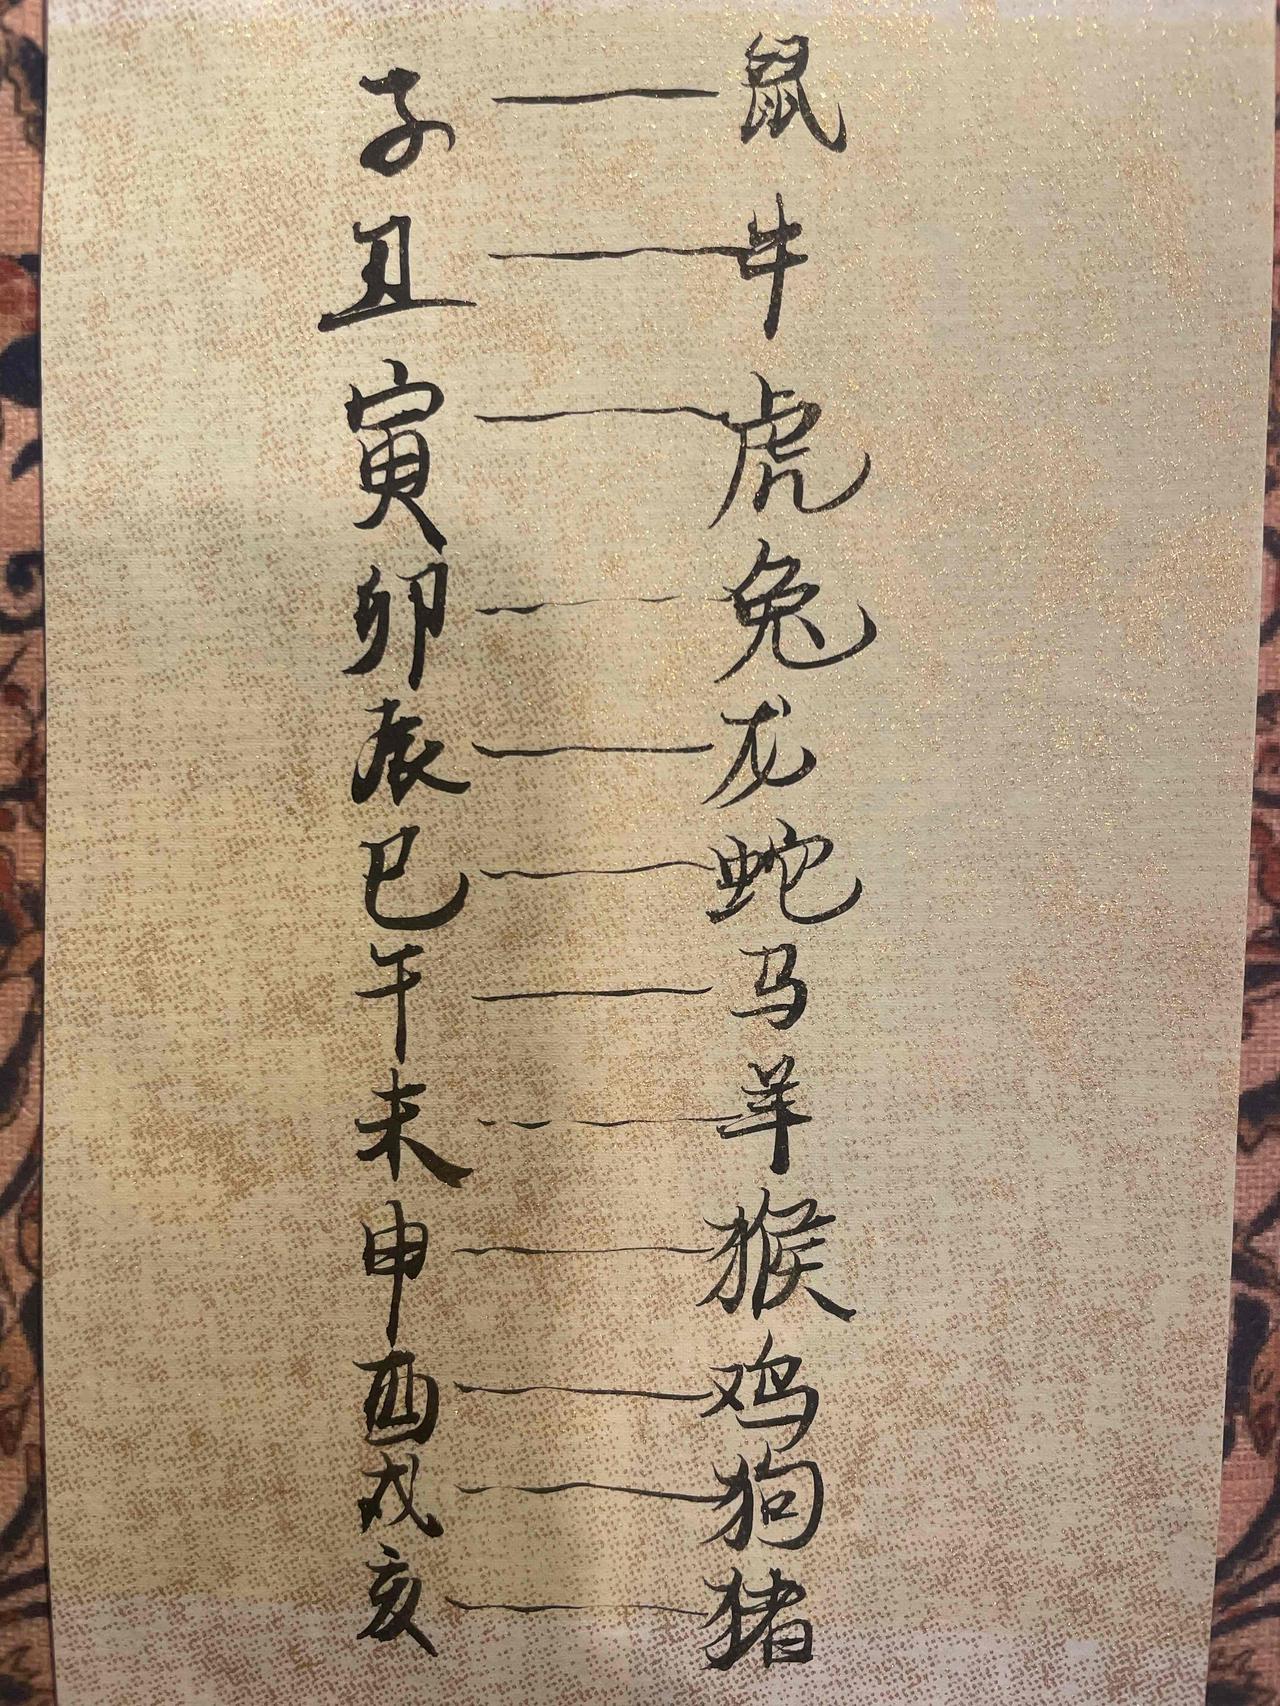 子——鼠
丑——牛
寅——虎
卯——兔
辰——龙
巳——蛇
午——马
未——羊
申——猴
酉——鸡
戌——狗
亥——猪